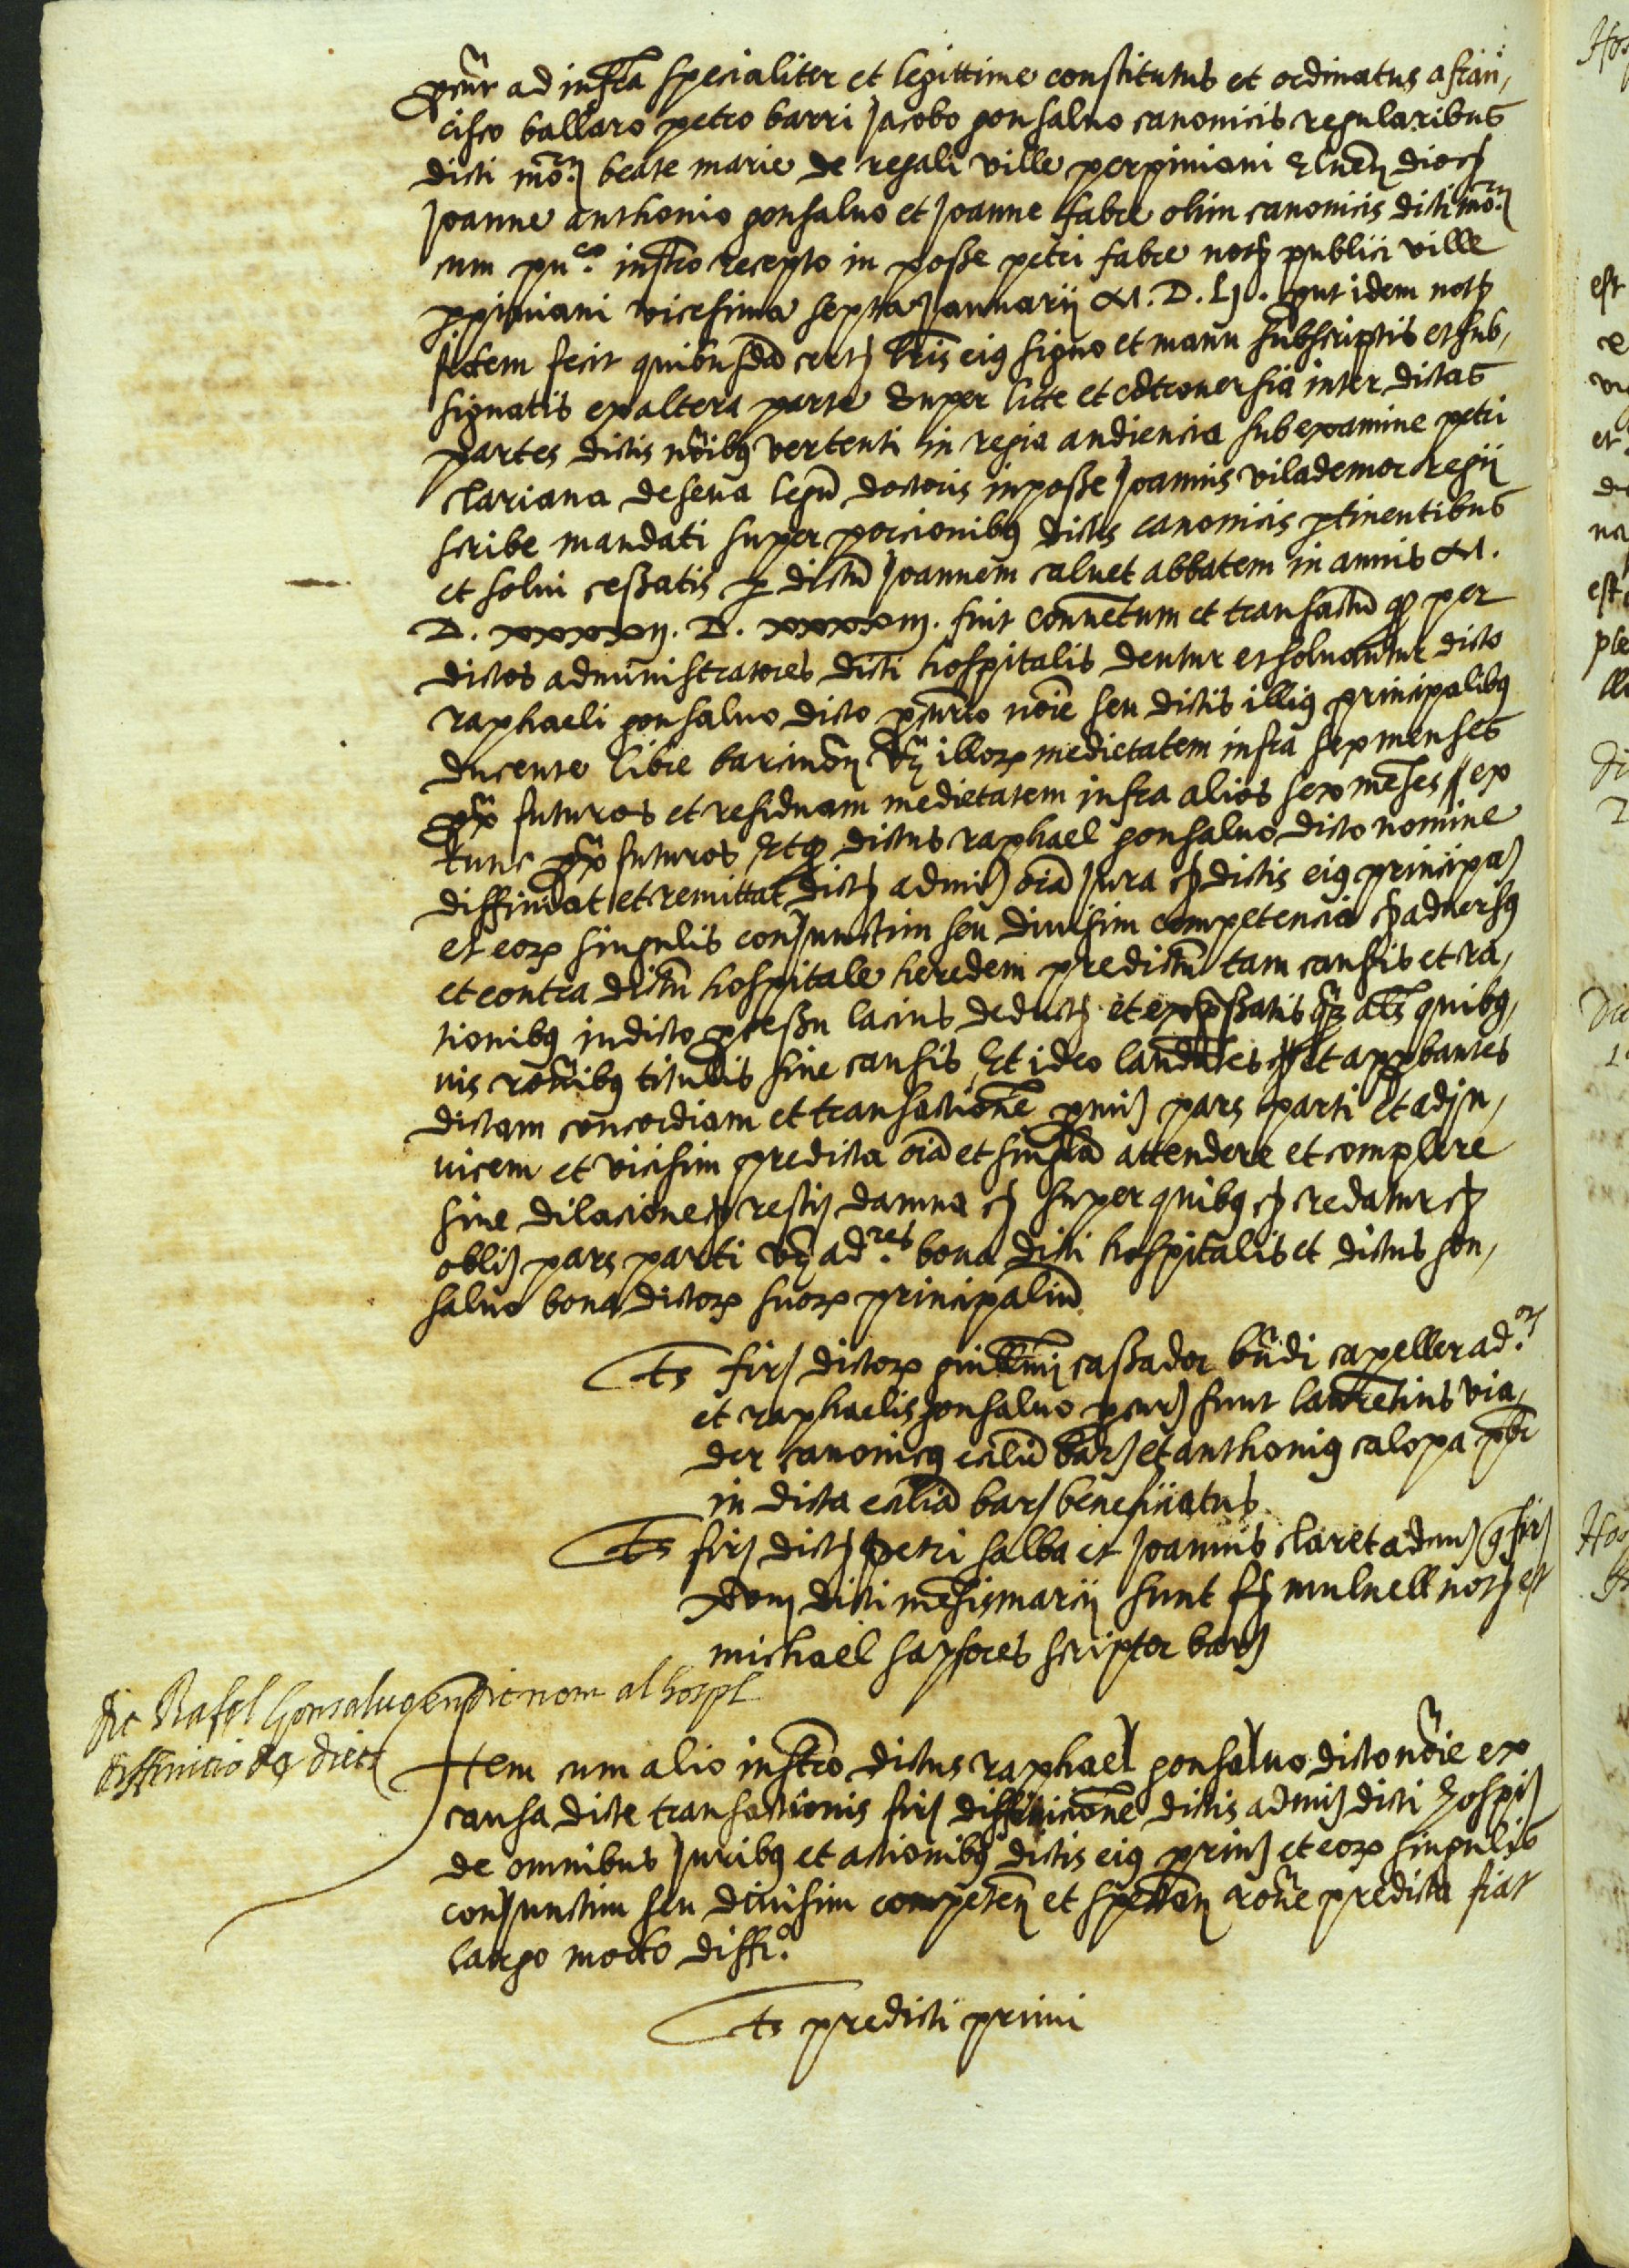 pcur ad infra specialiter et legittime constitutus et ordinatus a fran,
cisco ballaro petro barri Jacobo gonsaluo canonicis regularibus
dicti mo.rii beate marie de regali ville perpiniani Elnen dioc
Joanne anthonio gonsaluo et Joanne fabre olim canonicis dicti mo.rii
cum pu.co instro recepto in posse petri fabre not publici ville
ppiniani vicesima septa Januarii M. D. Lj. prut idem not
fidem fecit quibusda cert lris eius signo et manu subscriptis et sub,
signatis ex altera parte Super litte et cotrouersia inter dictas
partes dictis noibus vertenti in regia audiencia sub examine petri
Clariana de seua legu doctoris in posse Joannis vilademor regii
scribe mandati super porcionibus dictis canonicis ptinentibus
et solui cessatis p dictu Joannem caluet abbatem in annis M.
D. xxxxxij. D. xxxxxiij. fuit conuentum et transactu q per
dictos administratores dicti hospitalis dentur et soluantur dicto
raphaeli gonsaluo dicto pcurio noie seu dictis illius principalibus
ducente libre barcinon vz illorum medietatem infra sex menses
prox futuros et residuam medietatem infra alios sex meses ex
tunc prox futuros Et q dictus raphael gonsaluo dicto nomine
diffiniat et remittat dict admi oia Jura dictis eius principa
et eorum singulis conJunctim seu diuisim competencia aduersus
et contra dictu hospitale heredem predictu tam causis et ra,
tionibus in dicto pcessu lacius deduct et expssatis als quibus,
uis roibus titulis siue causis Et ideo laudates et appbantes
dictam concordiam et transactione pmi pars parti et ad in,
uicem et vicisim predicta oia et singla attendere et complere
sine dilacione resti damna super quibus credatur
obli pars parti vz ad.res bona dicti hospitalis et dictus gon,
saluo bona dictorum suorum principaliu
Ts fir dictorum guillmi cassador bndi capeller ad.or
et raphaelis gonsaluo pcur sunt lauretius via,
der canonicus eclie bar et anthonius calopa pbr
in dicta eclia bar beneficiatus
Ts fir dict petri salba et Joannis claret adm q fir
dicti mesis marcii sunt mulnell not et
michael sapores scriptor bar
Rafel Gonsaluo en dit nom al hospl
diffinicio de dicta
Item cum alio instro dictus raphael gonsaluo dicto noie ex
causa dicte transactionis fir diffinicione dictis admi dicti hospi
de omnibus Juribus et actionibus dictis eius prin et eorum singulis
conJunctim seu diuisim competen et spectan rone predicta fiat
largo modo diffi.o
Ts predicti primi